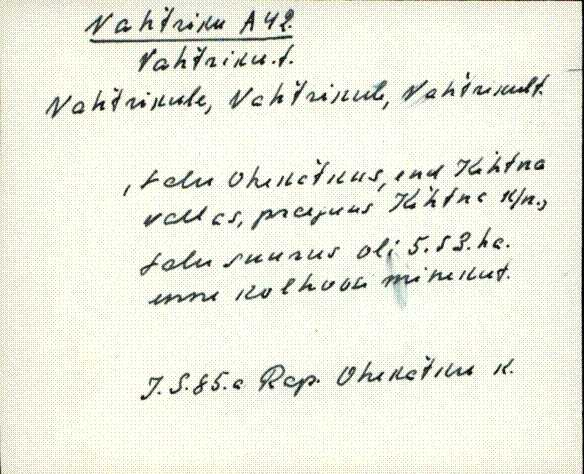 Vahtriku A42.
Vahtriku.t.
Vahtrikule, Vahtrikule, Vahtrikult.
, talu Ohekatkus, end Kehtna
vallas, praegune Kehtna k/n.,
talu suurus oli 5.53.ha.
enne kolhoosi minekut.
J.S.85.a Rap. Ohekatku k.